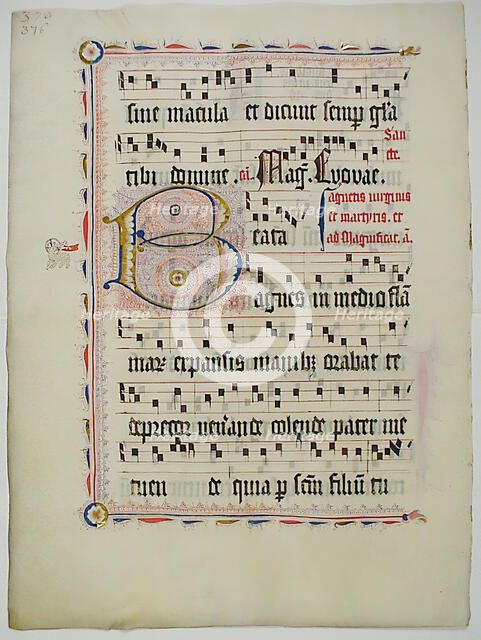 370
376
sine macula et dicunt semp glia
San
cte
tibi domine . añ. Mag̃. Euovae.
agnetis uirginis
et martyris. et
ad Magnificat. ã.
Beata
agnes in medio flã
mar expansis manibꝫ orabat te
deprecor ueñande colende pater me
tuen de quia p scm̃ filiũ tu
Heritage